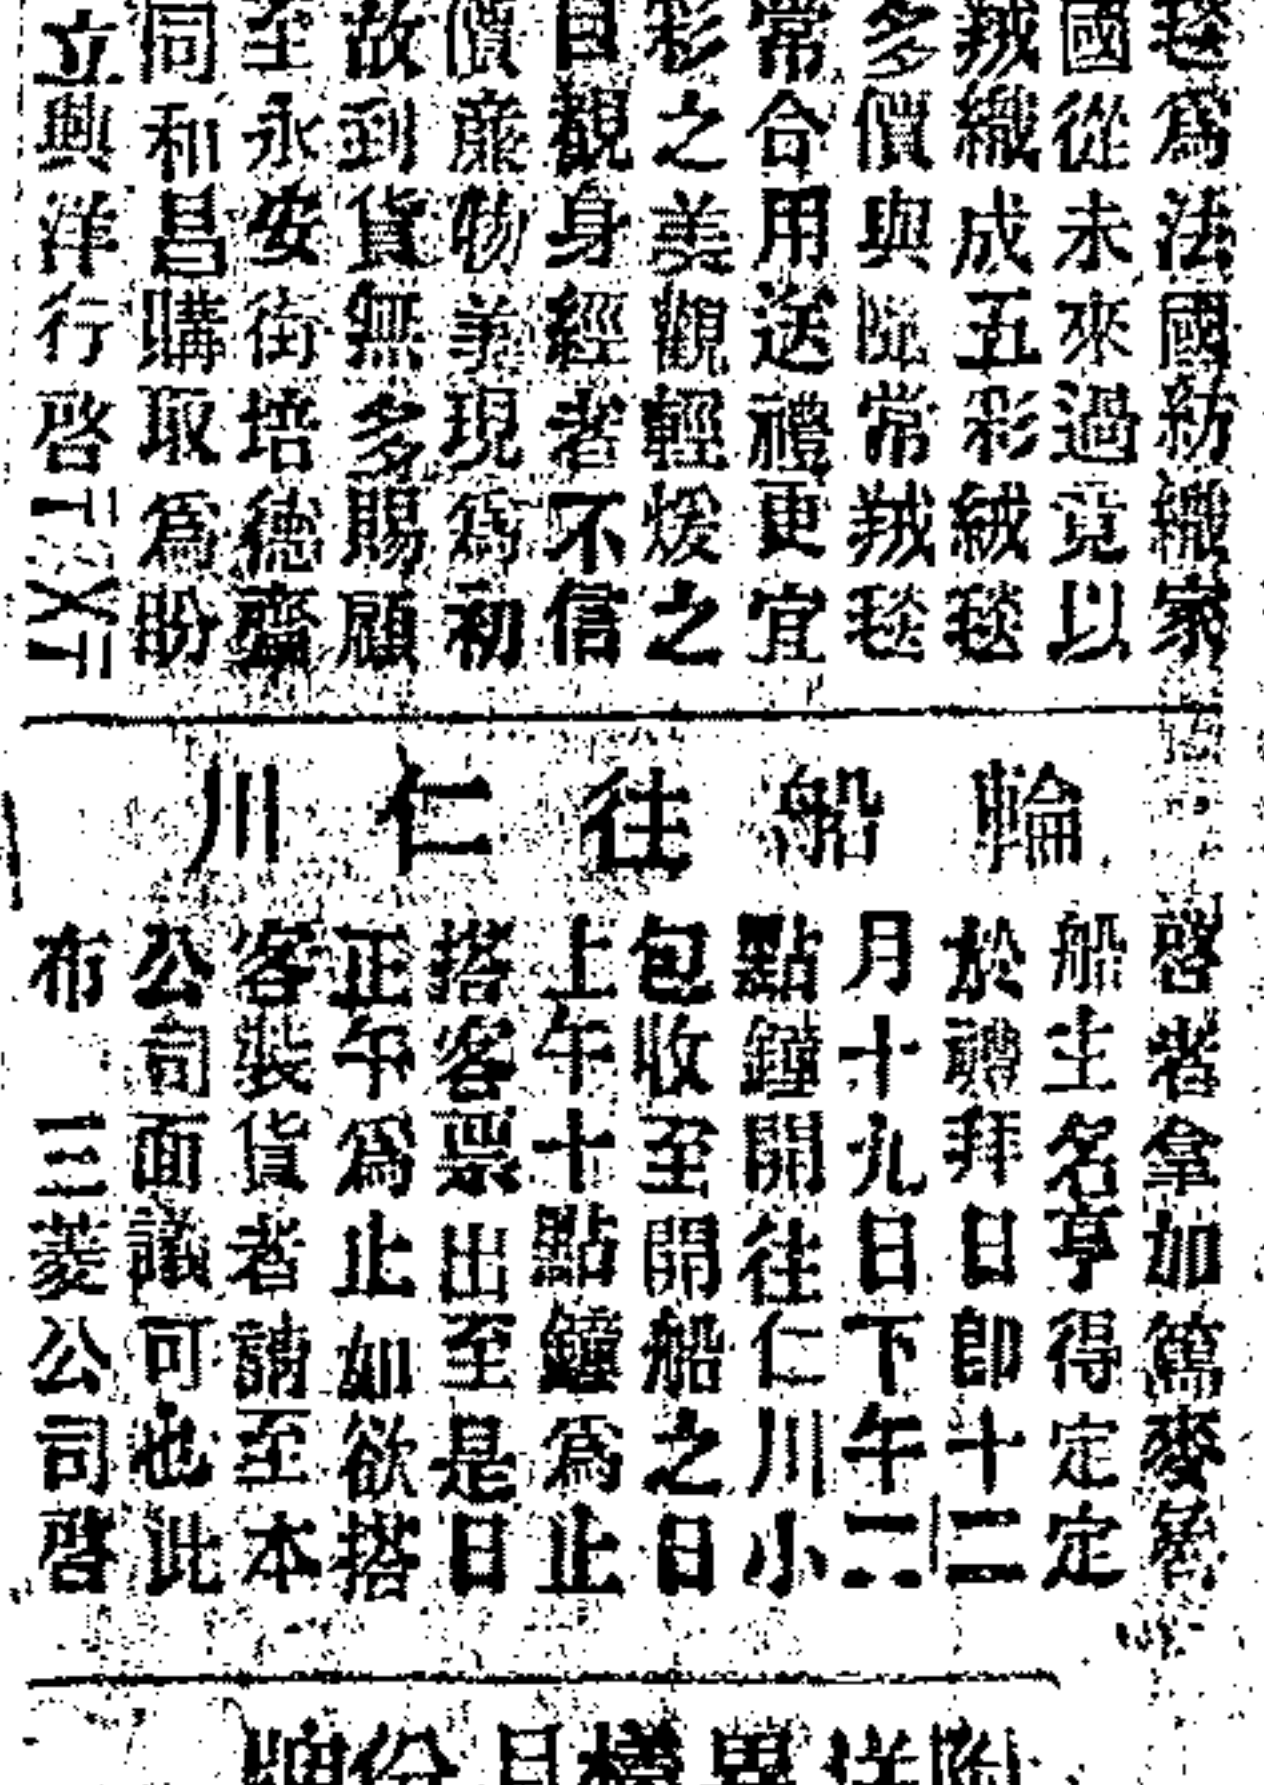 毯爲法國紡織家
國從未來過竟以
羢織成五彩絨毯
多價與隨常羢毯
常合用送禮更宜
彩之美觀輕煖之
目觀身經者不信
價廉物美現爲初
故到貨無多賜顧
至永安街培德齋
同和昌購取爲盼
立興洋行啓
輪船往仁川
啓者拿加篤麥
船主名亨得定定
於禮拜日即十二
月十九日下午二
點鐘開往仁川小
包收至開船之日
上午十點鐘爲止
搭客票出至是日
正午爲止如欲搭
客裝貨者請至本
公司面議可也此
布 三菱公司啓